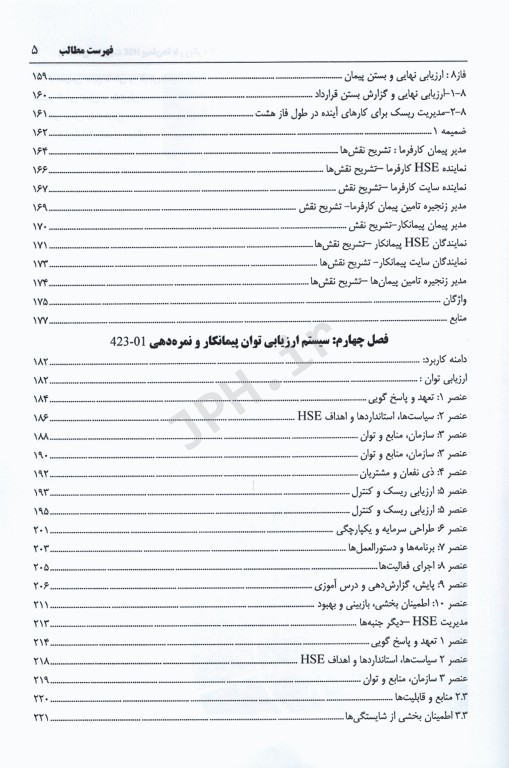 فهرست مطالب ۵
فاز۸ : ارزیابی نهایی و بستن پیمان ۱۵۹
۸-۱-ارزیابی نهایی و گزارش بستن قرارداد ۱۶۰
۸-۲-مدیریت ریسک برای کارهای آینده در طول فاز هشت ۱۶۱
ضمیمه ۱ ۱۶۲
مدیر پیمان کارفرما : تشریح نقش‌ها ۱۶۴
نماینده HSE کارفرما –تشریح نقش‌ها ۱۶۶
نماینده سایت کارفرما –تشریح نقش ۱۶۷
مدیر زنجیره تامین پیمان کارفرما- تشریح نقش ۱۶۹
مدیر پیمان پیمانکار-تشریح نقش ۱۷۰
نمایندگان HSE پیمانکار –تشریح نقش‌ها ۱۷۱
نمایندگان سایت پیمانکار- تشریح نقش‌ها ۱۷۳
مدیر زنجیره تامین پیمان‌ها –تشریح نقش‌ها ۱۷۴
واژگان ۱۷۵
منابع ۱۷۷
فصل چهارم: سیستم ارزیابی توان پیمانکار و نمره‌دهی 01-423
دامنه کاربرد: ۱۸۲
ارزیابی توان : ۱۸۲
عنصر ۱: تعهد و پاسخ گویی ۱۸۴
عنصر ۲: سیاست‌ها، استانداردها و اهداف HSE ۱۸۶
عنصر ۳: سازمان، منابع و توان ۱۸۸
عنصر ۳: سازمان، منابع و توان ۱۹۰
عنصر ۴: ذی نفعان و مشتریان ۱۹۲
عنصر ۵: ارزیابی ریسک و کنترل ۱۹۳
عنصر ۵: ارزیابی ریسک و کنترل ۱۹۵
عنصر ۶: طراحی سرمایه و یکپارچگی ۲۰۱
عنصر ۷: برنامه‌ها و دستورالعمل‌ها ۲۰۳
عنصر ۸: اجرای فعالیت‌ها ۲۰۵
عنصر ۹: پایش، گزارش‌دهی و درس آموزی ۲۰۶
عنصر ۱۰: اطمینان بخشی، بازبینی و بهبود ۲۱۱
مدیریت HSE –دیگر جنبه‌ها ۲۱۳
عنصر ۱ تعهد و پاسخ گویی ۲۱۴
عنصر ۲ سیاست‌ها، استانداردها و اهداف HSE ۲۱۸
عنصر ۳ سازمان، منابع و توان ۲۱۹
۲.۳ منابع و قابلیت‌ها ۲۲۰
۳.۳ اطمینان بخشی از شایستگی‌ها ۲۲۱
JPH.ir